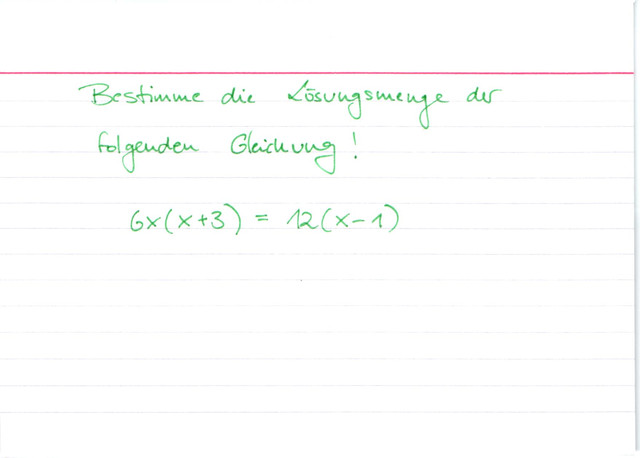 Bestimme die Lösungsmenge der
folgenden Gleichung!
6x(x+3) = 12(x-1)